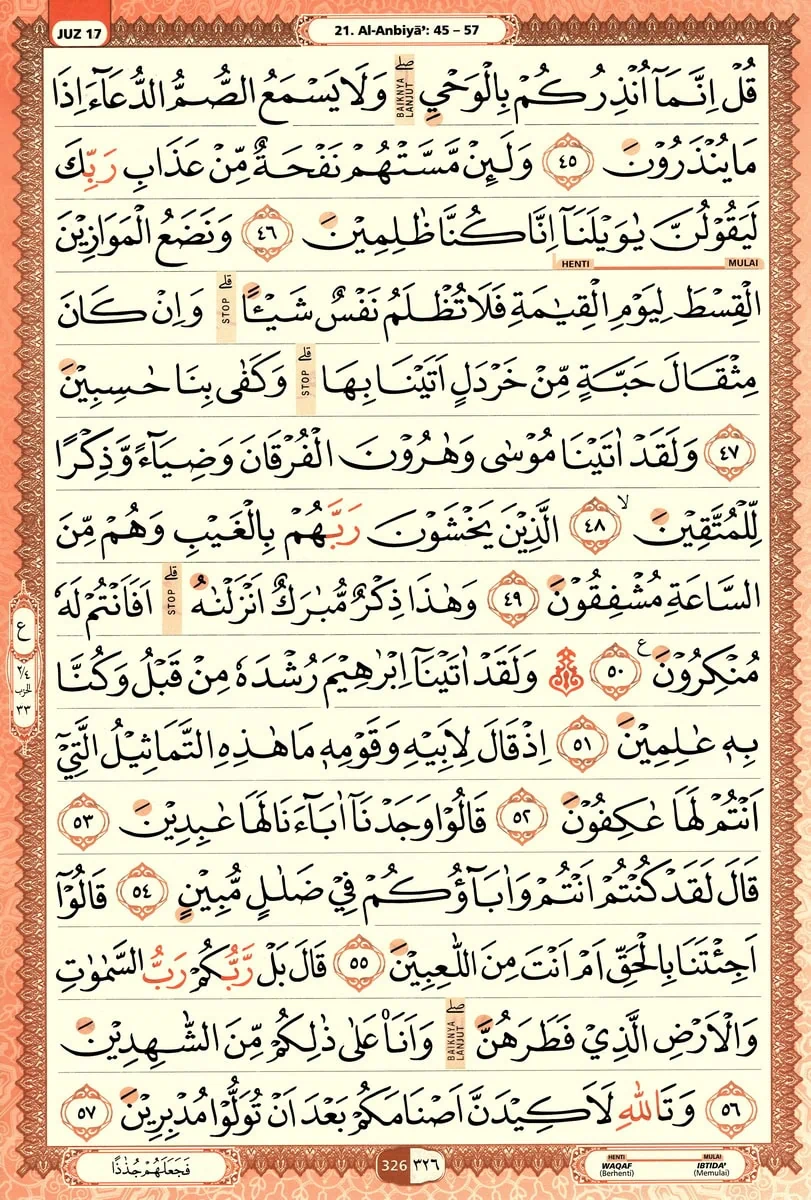 JUZ 17
21. Al-Anbiyā': 45 – 57
قُلْ اِنَّمَآ اُنْذِرُكُمْ بِالْوَحْيِ ۖ BAIKNYA LANJUT وَلَا يَسْمَعُ الصُّمُّ الدُّعَاۤءَ اِذَا
مَا يُنْذَرُوْنَ ٤٥ وَلَىِٕنْ مَّسَّتْهُمْ نَفْحَةٌ مِّنْ عَذَابِ رَبِّكَ
لَيَقُوْلُنَّ يٰوَيْلَنَآ اِنَّا كُنَّا ظٰلِمِيْنَ ٤٦ وَنَضَعُ الْمَوَازِيْنَ
HENTI MULAI
الْقِسْطَ لِيَوْمِ الْقِيٰمَةِ فَلَا تُظْلَمُ نَفْسٌ شَيْـًٔا ۗ STOP وَاِنْ كَانَ
مِثْقَالَ حَبَّةٍ مِّنْ خَرْدَلٍ اَتَيْنَا بِهَا ۗ STOP وَكَفٰى بِنَا حٰسِبِيْنَ
٤٧ وَلَقَدْ اٰتَيْنَا مُوْسٰى وَهٰرُوْنَ الْفُرْقَانَ وَضِيَاۤءً وَّذِكْرًا
لِّلْمُتَّقِيْنَ ۙ ٤٨ الَّذِيْنَ يَخْشَوْنَ رَبَّهُمْ بِالْغَيْبِ وَهُمْ مِّنَ
السَّاعَةِ مُشْفِقُوْنَ ٤٩ وَهٰذَا ذِكْرٌ مُّبٰرَكٌ اَنْزَلْنٰهُ ۗ STOP اَفَاَنْتُمْ لَهٗ
مُنْكِرُوْنَ ع ٥٠ ۞ وَلَقَدْ اٰتَيْنَآ اِبْرٰهِيْمَ رُشْدَهٗ مِنْ قَبْلُ وَكُنَّا
بِهٖ عٰلِمِيْنَ ٥١ اِذْ قَالَ لِاَبِيْهِ وَقَوْمِهٖ مَا هٰذِهِ التَّمَاثِيْلُ الَّتِيْٓ
اَنْتُمْ لَهَا عٰكِفُوْنَ ٥٢ قَالُوْا وَجَدْنَآ اٰبَاۤءَنَا لَهَا عٰبِدِيْنَ ٥٣
قَالَ لَقَدْ كُنْتُمْ اَنْتُمْ وَاٰبَاۤؤُكُمْ فِيْ ضَلٰلٍ مُّبِيْنٍ ٥٤ قَالُوْٓا
اَجِئْتَنَا بِالْحَقِّ اَمْ اَنْتَ مِنَ اللّٰعِبِيْنَ ٥٥ قَالَ بَلْ رَّبُّكُمْ رَبُّ السَّمٰوٰتِ
وَالْاَرْضِ الَّذِيْ فَطَرَهُنَّ ۖ BAIKNYA LANJUT وَاَنَا۠ عَلٰى ذٰلِكُمْ مِّنَ الشّٰهِدِيْنَ
٥٦ وَتَاللّٰهِ لَاَكِيْدَنَّ اَصْنَامَكُمْ بَعْدَ اَنْ تُوَلُّوْا مُدْبِرِيْنَ ٥٧
ع
٢/٤
الحزب
٣٣
فَجَعَلَهُمْ جُذٰذًا
326 ٣٢٦
HENTI WAQAF (Berhenti)
MULAI IBTIDA' (Memulai)